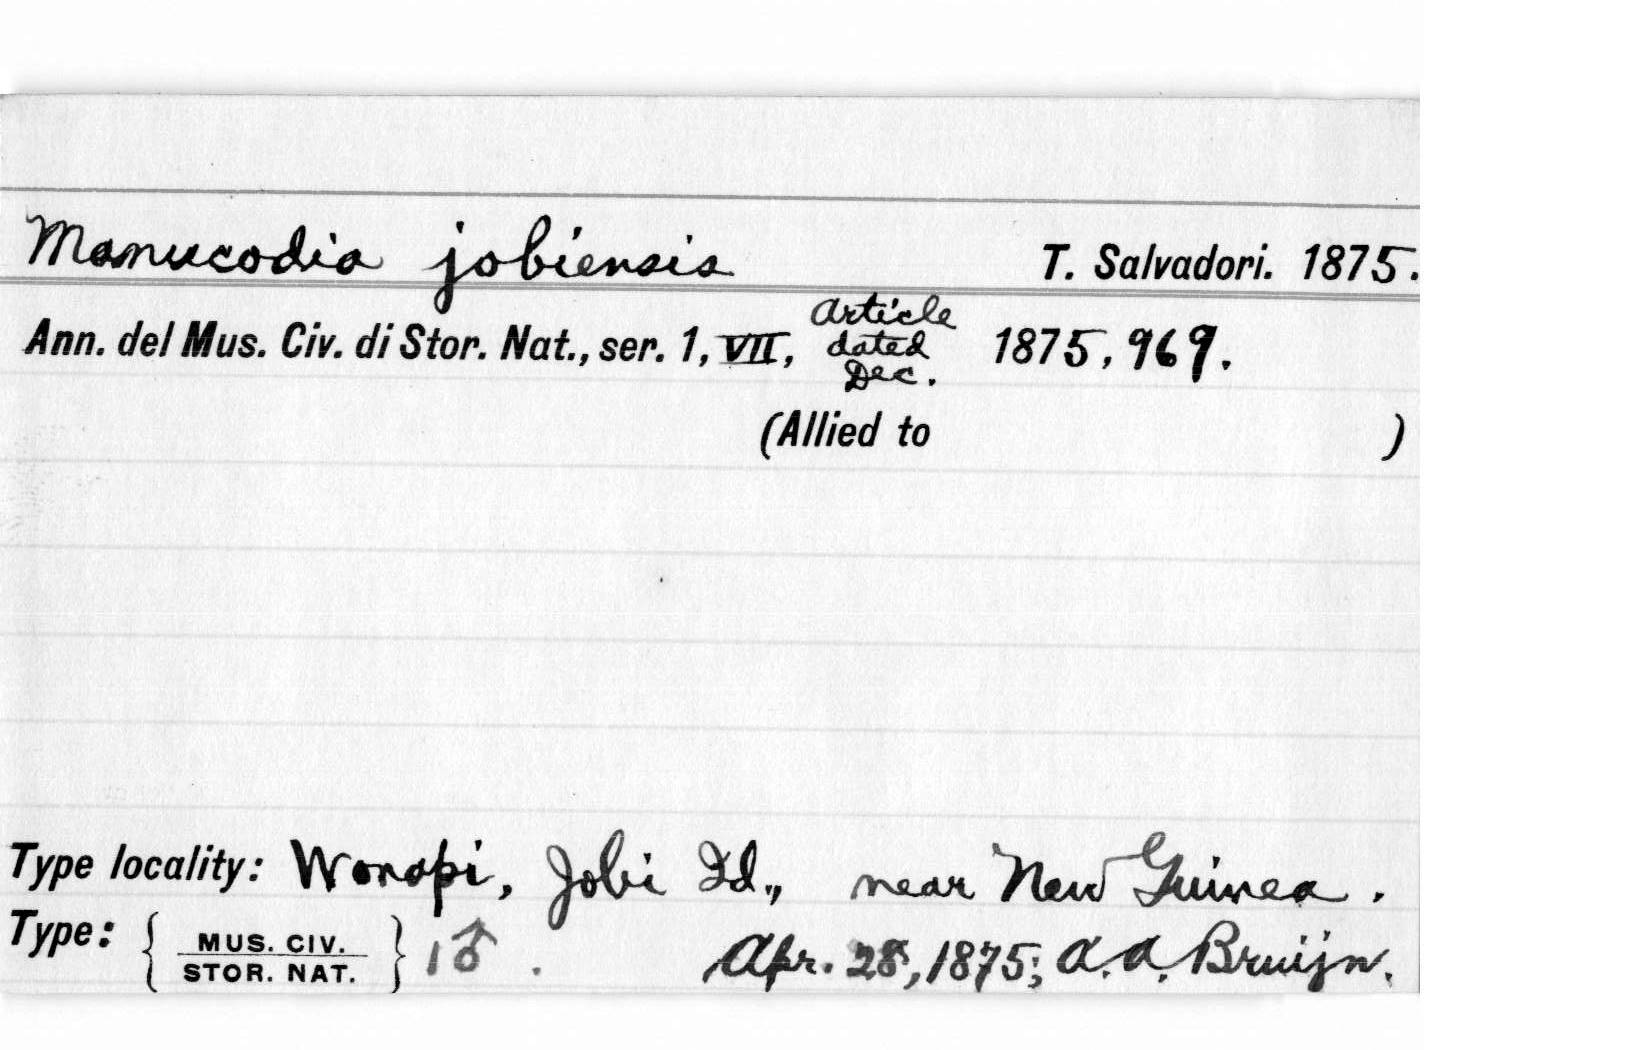 Manucodia jobiensis T. Salvadori. 1875.
Ann. del Mus. Civ. di Stor. Nat., ser. 1, VII, Article dated Dec. 1875, 969.
(Allied to )
Type locality: Wonapi, Jobi Id., near New Guinea.
Type: { MUS. CIV. STOR. NAT. } 1♂. Apr. 28, 1875; A.A. Bruijn.